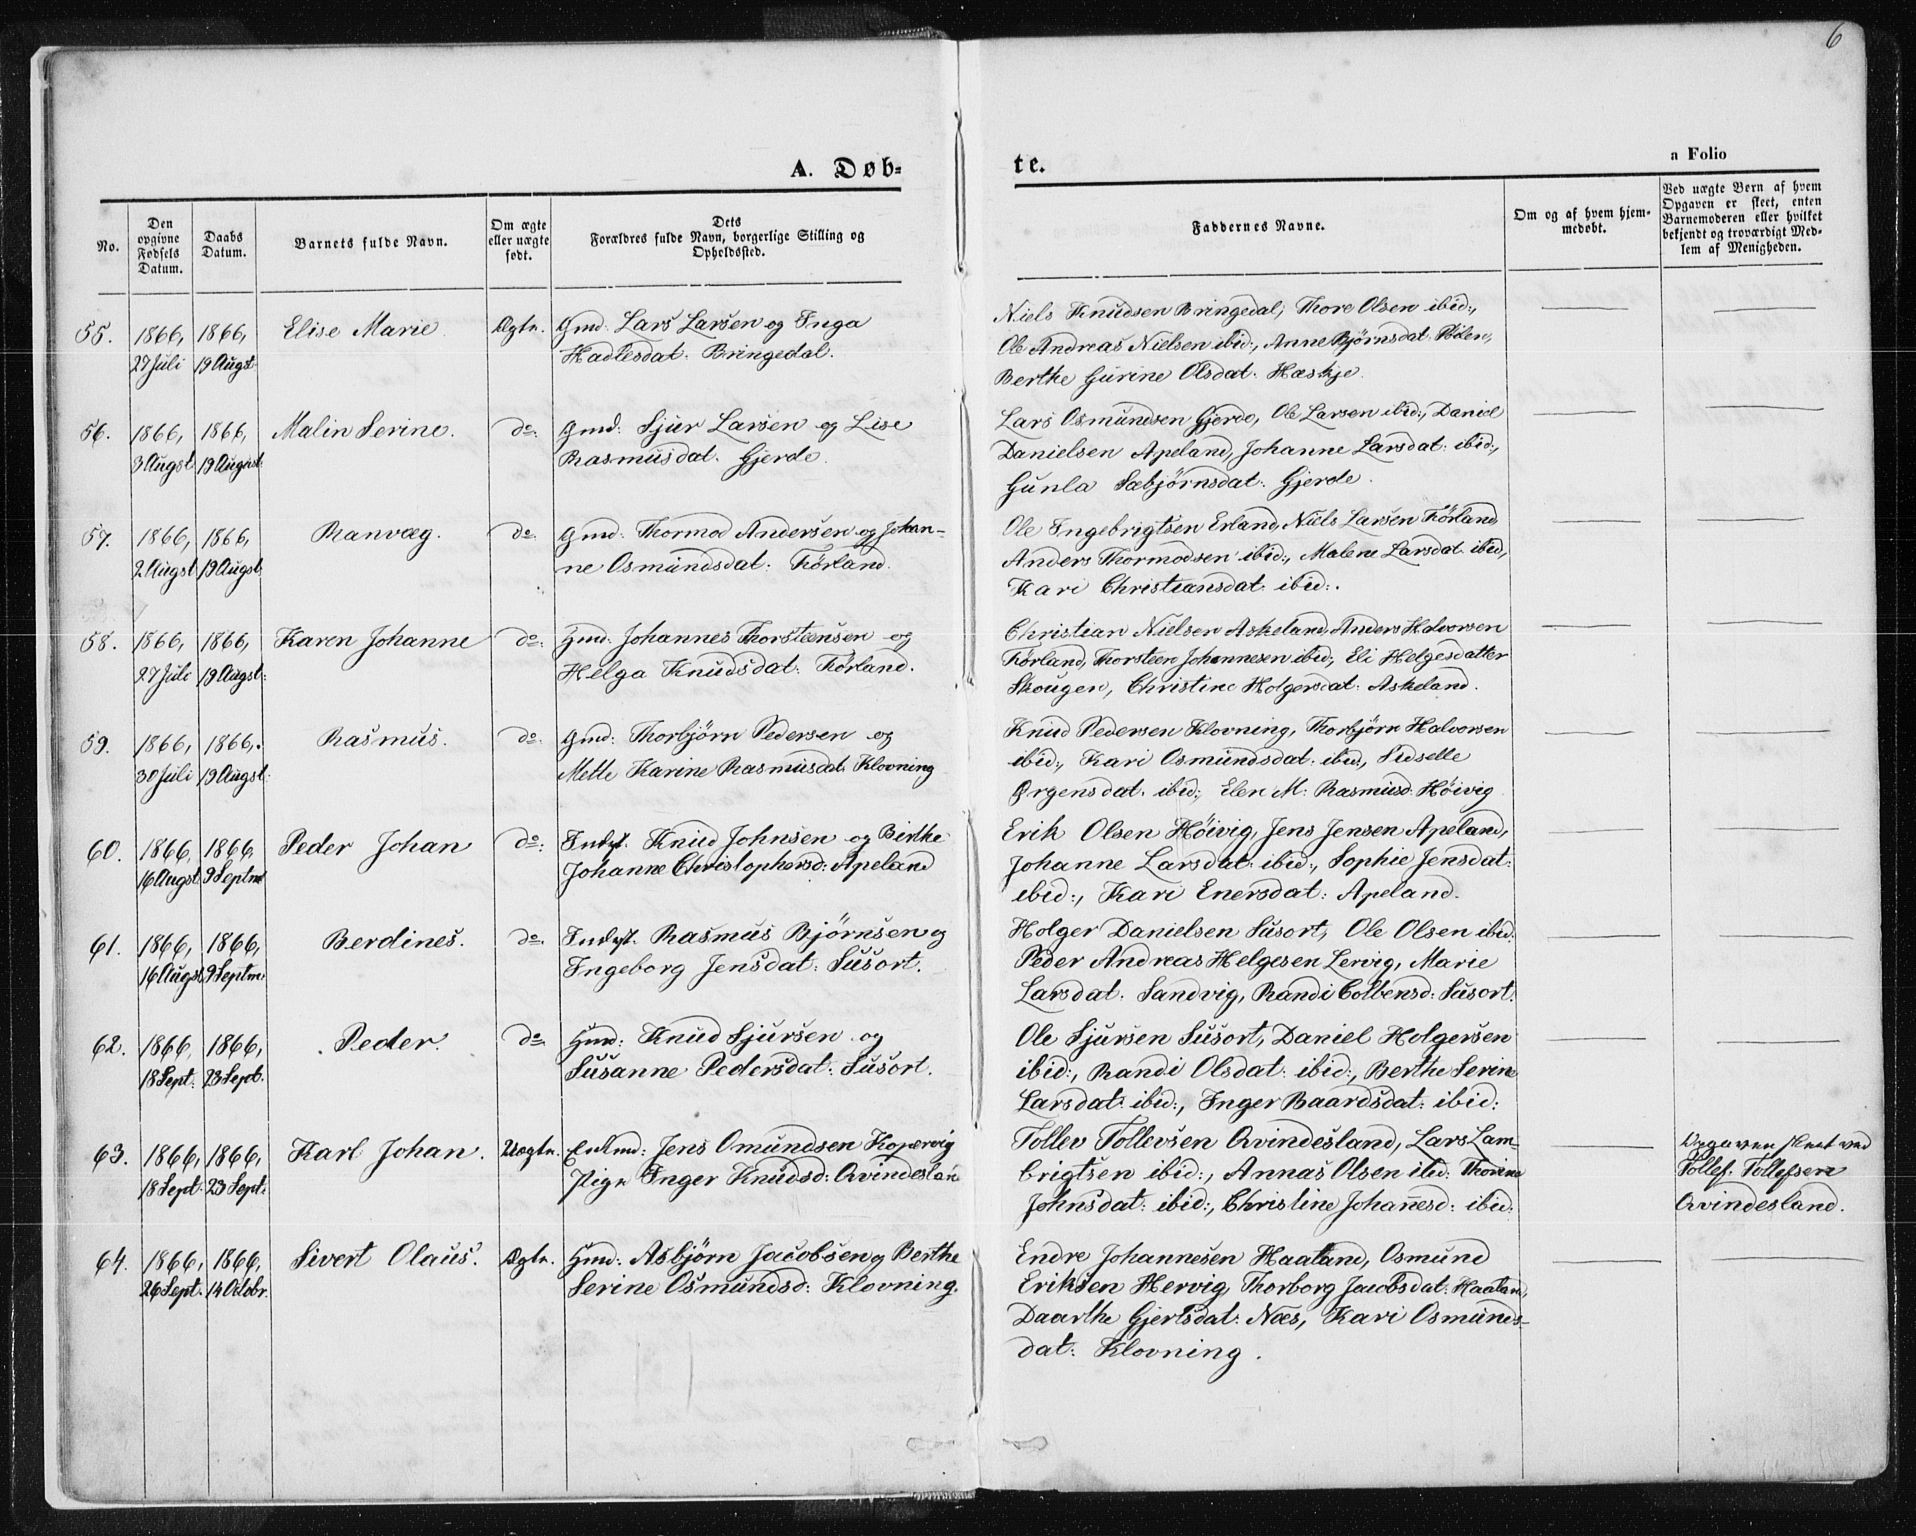 6
A. Døb=
te.
a Folio
No.
Den
opgivne
Fødsels
Datum.
Daabs
Datum.
Barnets fulde Navn.
Om ægte
eller uægte
født.
Dets
Forældres fulde Navn, borgerlige Stilling og
Opholdssted.
Faddernes Navne.
Om og af hvem hjem-
medøbt.
Ved uægte Børn af hvem
Opgaven er skeet, enten
Barnemoderen eller hvilket
bekjendt og troværdigt Med-
lem af Menigheden.
55. 1866, 1866, Elise Marie Ægte. Gmd. Lars Larsen og Inga
27 Juli 19 Augst. Hadlesdat. Bringedal.
Niels Knudsen Bringedal, Thore Olsen ibid:,
Ole Andreas Nielsen ibid:, Anne Bjørnsdat.
Berthe Gurine Olsdat. Hæskje
56. 1866, 1866, Malin Serine. do. Gmd: Sjur Larsen og Lise
3 Augst 19 August Rasmusdat. Gjerde
Lars Osmundsen Gjerde, Ole Larsen ibid:, Daniel
Danielsen Apeland, Johanne Larsdat: ibid:,
Gunla Sæbjørnsdat: Gjerde.
57. 1866, 1866, Ranvæg. do. Gmd: Thormod Andersen og Johan-
2 Augst 19 Augst. ne Osmundsdat:Førland.
Ole Ingebrigtsen Erland, Niels Larsen Førland,
Anders Thormodsen ibid:, Malene Larsdat ibid,
Kari Christiansdat ibid:.
58. 1866, 1866, Karen Johanne do: Gmd: Johannes Thorsteensen og
27 Juli 19 Augst: Helga Knudsdat: Førland.
Christian Nielsen Askeland, Anders Halvorsen
Førland, Thorsteen Johannesen ibid, Eli Helgesdatter
Skougen, Christine Holgersdat: Askeland.
59. 1866, 1866, Rasmus. do. Gmd: Thorbjørn Pedersen og
30 Juli 19 Augst: Mette Karine Rasmusdat: Klovning
Knud Pedersen Klovning, Thorbjørn Halvorsen
ibid:, Kari Osmundsdat: ibid:, Sidselle
Ørgensdat. ibid:, Elen M: Rasmusd: Høivig
60. 1866, 1866, Peder Johan do: Indst. Knud Johnsen og Birthe
16 Augst 9 Septm Johanne Christophersd: Apeland
Erik Olsen Høivig, Jens Jensen Apeland,
Johanne Larsdat: ibid:, Sophie Jensdat:
ibid:, Kari Enersdat: Apeland.
61. 1866, 1866, Berdines. do. Indst. Rasmus Bjørnsen og
16 Augst. 9 Septm. Ingeborg Jensdat: Susort.
Holger Danielsen Susort, Ole Olsen ibid:
Peder Andreas Helgesen Lervig, Marie
Larsdat. Sandvig, Randi Colbensd: Susort.
62. 1866, 1866, Peder. do. Gmd: Knud Sjursen og
18 Sept: 23 Sept. Susanne Pedersdat: Susort.
Ole Sjursen Susort, Daniel Holgersen
ibid:, Randi Olsdat: ibid:, Berthe Serine
Larsdat: ibid:, Inger Baardsdat: ibid:
63. 1866, 1866, Karl Johan. Uægte. Enkmd: Jens Omundsen Kopervig
18 Sept: 23 Sept: Pige Inger Knudsd: Qvindesland
Tollev Tollevsen Qvindesland, Lars Lam-
brigtsen ibid:, Annas Olsen ibid: Thorine
Johnsdat: ibid:, Christine Johañesd: ibid:
Opgaven skeet ved
Tollef Tollefsen
Qvindesland.
64. 1866, 1866, Sivert Olaus. Ægte. Gmd: Asbjørn Jacobsen og Berthe
26 Sept: 14 Octobr. Serine Osmundsd: Klovning.
Endre Johannesen Haaland, Osmund
Eriksen Hervig, Thorborg Jacobsdat: Haaland,
Daarthe Gjertsdat: Næs, Kari Osmunds-
dat: Klovning.